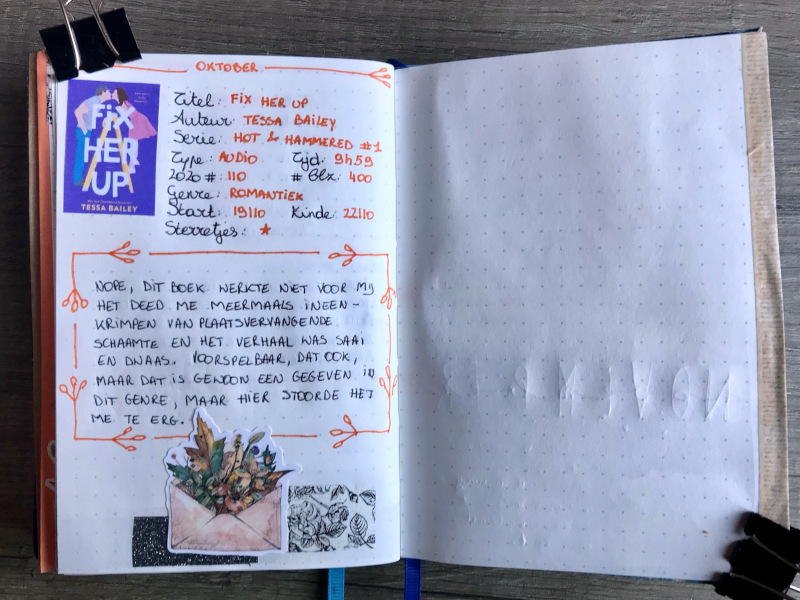 OKTOBER
FiX
HER
UP
TESSA BAILEY
Titel: FiX HER UP
Auteur: TESSA BAILEY
Serie: HOT & HAMMERED #1
Type: AUDIO Tijd: 9h59
2020 #: 110 # Blz: 400
Genre: ROMANTIEK
Start: 19/10 Einde: 22/10
Sterretjes: ★
NOPE, DIT BOEK WERKTE NIET VOOR MIJ
HET DEED ME MEERMAALS INEEN-
KRIMPEN VAN PLAATSVERVANGENDE
SCHAAMTE EN HET VERHAAL WAS SAAI
EN DWAAS. VOORSPELBAAR, DAT OOK,
MAAR DAT IS GEWOON EEN GEGEVEN IN
DIT GENRE, MAAR HIER STOORDE HET
ME TE ERG.